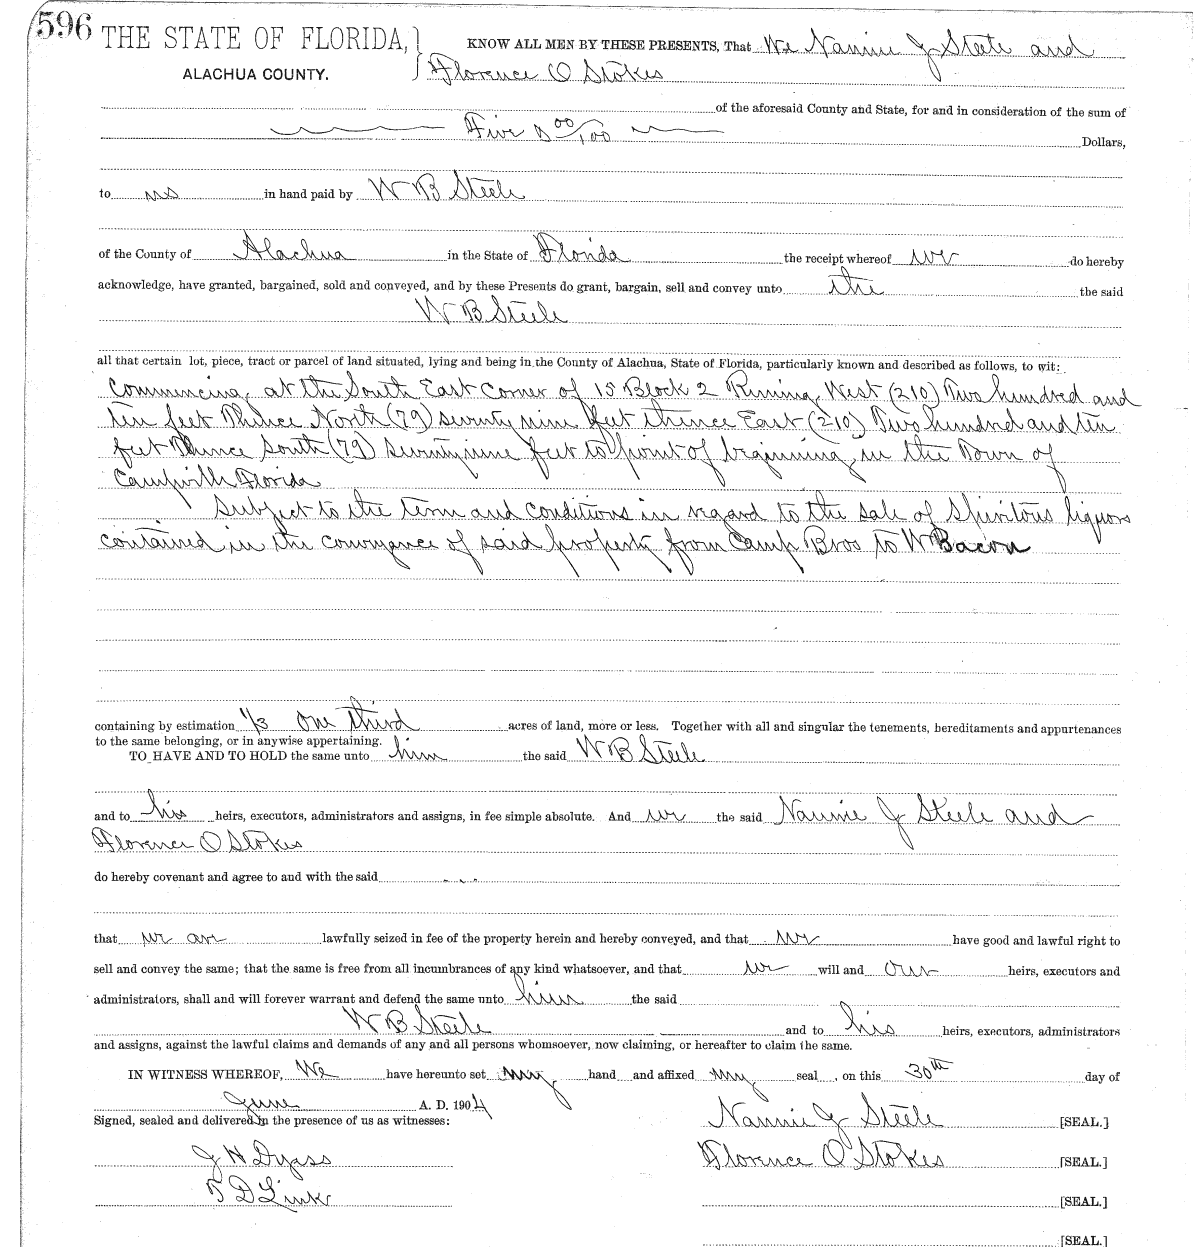 596 THE STATE OF FLORIDA, KNOW ALL MEN BY THESE PRESENTS, That We Nannie J Steele and
ALACHUA COUNTY. Florence O Stokes
of the aforesaid County and State, for and in consideration of the sum of
Five & 00/100 Dollars,
to us in hand paid by W B Steele
of the County of Alachua in the State of Florida the receipt whereof we do hereby
acknowledge, have granted, bargained, sold and conveyed, and by these Presents do grant, bargain, sell and convey unto the the said
W B Steele
all that certain lot, piece, tract or parcel of land situated, lying and being in the County of Alachua, State of Florida, particularly known and described as follows, to wit:
Commencing at the South East Corner of 15 Block 2 Runing West (210) Two hundred and
ten feet Thence North (79) seventy nine feet thence East (210) Two hundred and ten
feet Thence South (79) seventy nine feet to point of beginning in the Town of
Campville Florida
Subject to the term and conditions in regard to the sale of Spiritous liquors
contained in the conveyance of said property from Camp Bros to W Bacon
containing by estimation 1/3 one third acres of land, more or less. Together with all and singular the tenements, hereditaments and appurtenances
to the same belonging, or in anywise appertaining.
TO HAVE AND TO HOLD the same unto him the said W B Steele
and to his heirs, executors, administrators and assigns, in fee simple absolute. And we the said Nannie J Steele and
Florence O Stokes
do hereby covenant and agree to and with the said
that we are lawfully seized in fee of the property herein and hereby conveyed, and that we have good and lawful right to
sell and convey the same; that the same is free from all incumbrances of any kind whatsoever, and that we will and our heirs, executors and
administrators, shall and will forever warrant and defend the same unto him the said
W B Steele and to his heirs, executors, administrators
and assigns, against the lawful claims and demands of any and all persons whomsoever, now claiming, or hereafter to claim the same.
IN WITNESS WHEREOF, We have hereunto set my hand and affixed my seal, on this 30th day of
June A. D. 1904
Signed, sealed and delivered in the presence of us as witnesses: Nannie J Steele [SEAL.]
J H Dyass Florence O Stokes [SEAL.]
D Link [SEAL.]
[SEAL.]